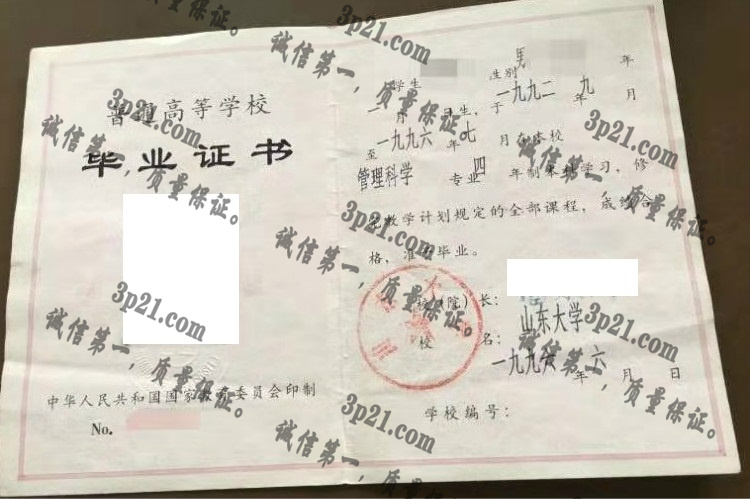 普通高等学校
毕业证书
中华人民共和国国家教育委员会印制
No.
学生 性别 男 年
月 生,于一九九二年九月
至一九九六年七月在本校
管理科学 专业 四 年制本科学习,修
完教学计划规定的全部课程,成绩合
格,准予毕业。
校(院)长:
校 名:山东大学
一九九六年六月 日
学校编号:
3p21.com
诚信第一,质量保证。
3p21.com
诚信第一,质量保证。
3p21.com
诚信第一,质量保证。
3p21.com
诚信第一,质量保证。
3p21.com
诚信第一,质量保证。
3p21.com
诚信第一,质量保证。
3p21.com
诚信第一,质量保证。
3p21.com
诚信第一,质量保证。